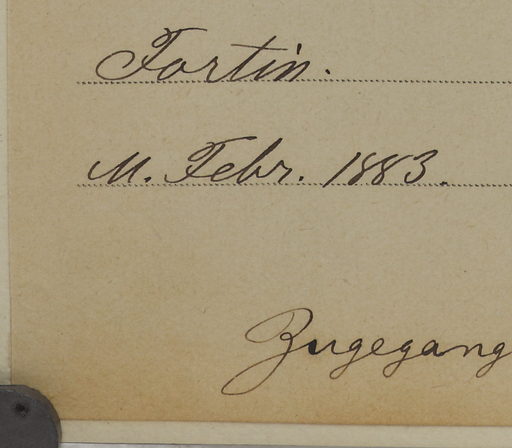 Fortin.
M. Febr. 1883.
Zugegang